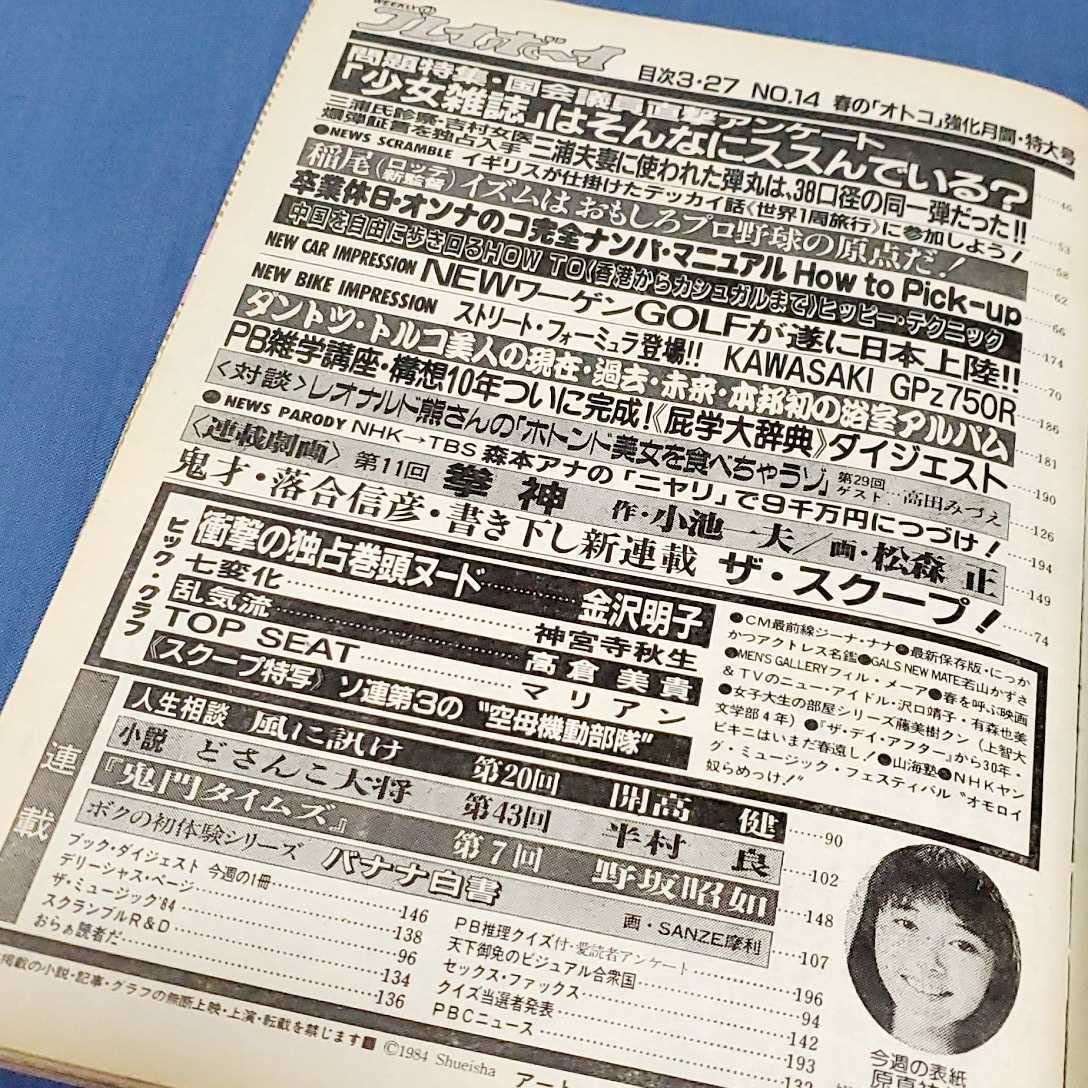 WEEKLY
プレイボーイ
目次3・27 NO.14 春の「オトコ」強化月間・特大号
問題特集・国会議員直撃アンケート
「少女雑誌」はそんなにススんでいる?
46
三浦氏診察・吉村女医
爆弾証言を独占入手
三浦夫妻に使われた弾丸は、38口径の同一弾だった!!
53
●NEWS SCRAMBLE イギリスが仕掛けたデッカイ話〈世界1周旅行〉に参加しよう!
58
稲尾(ロッテ新監督)イズムはおもしろプロ野球の原点だ!
62
卒業休日・オンナのコ完全ナンパ・マニュアル How to Pick-up
66
中国を自由に歩き回るHOW TO〈香港からカシュガルまで〉ヒッピー・テクニック
174
NEW CAR IMPRESSION NEWワーゲンGOLFが遂に日本上陸!!
70
NEW BIKE IMPRESSION ストリート・フォーミュラ登場!! KAWASAKI GPz750R
186
ダントツ・トルコ美人の現在・過去・未来・本邦初の浴室アルバム
181
PB雑学講座・構想10年ついに完成!《屁学大辞典》ダイジェスト
190
<対談>レオナルド熊さんの「ホトンド美女を食べちゃうゾ」第29回 ゲスト 高田みづえ
126
●NEWS PARODY NHK→TBS 森本アナの「ニヤリ」で9千万円につづけ!
194
〈連載劇画〉第11回 拳神 作・小池一夫/画・松森 正
149
鬼才・落合信彦・書き下し新連載 ザ・スクープ!
74
ビッグ・グラフ
衝撃の独占巻頭ヌード 金沢明子
七変化 神宮寺秋生
乱気流 高倉美貴
TOP SEAT マリアン
《スクープ特写》ソ連第3の“空母機動部隊”
●CM最前線ジーナ・ナナ●最新保存版・にっか
かつアクトレス名鑑●GALS NEW MATE若山かずさ
●MEN'S GALLERYフィル・メーア●春を呼ぶ映画
&TVのニュー・アイドル・沢口靖子・有森也美
●女子大生の部屋シリーズ藤美樹クン(上智大
文学部4年)●『ザ・デイ・アフター』から30年・
ビキニはいまだ春遠し!●山海塾●NHKヤン
グ・ミュージック・フェスティバル“オモロイ
奴らめっけ!”
連載
人生相談 風に訊け 第20回 開高 健
90
小説 どさんこ大将 第43回 半村 良
102
『鬼門タイムズ』 第7回 野坂昭如
148
ボクの初体験シリーズ バナナ白書 画・SANZE摩利
107
ブック・ダイジェスト 今週の1冊 146
デリーシャス・ページ 138
ザ・ミュージック'84 96
スクランブルR&D 134
おらぁ読者だ 136
PB推理クイズ付・愛読者アンケート 196
天下御免のビジュアル合衆国 94
セックス・ファックス 142
クイズ当選者発表 193
PBCニュース 132
掲載の小説・記事・グラフの無断上映・上演・転載を禁じます■ ©1984 Shueisha
アート
今週の表紙